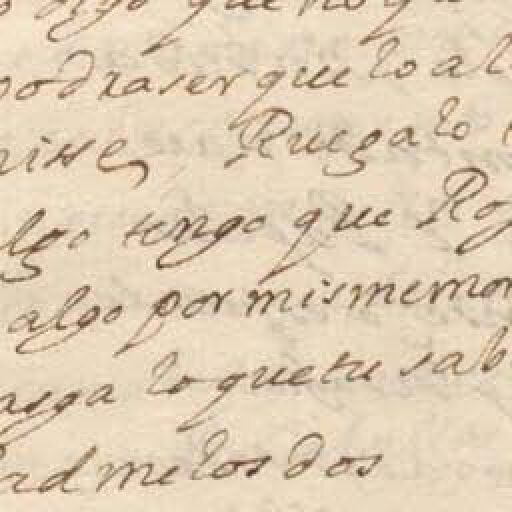 algo que no qu
podra ser que lo al
nisse, Ruegalo
algo tengo que Rog
algo por mis memor
arga lo que tu sab
ad me los dos